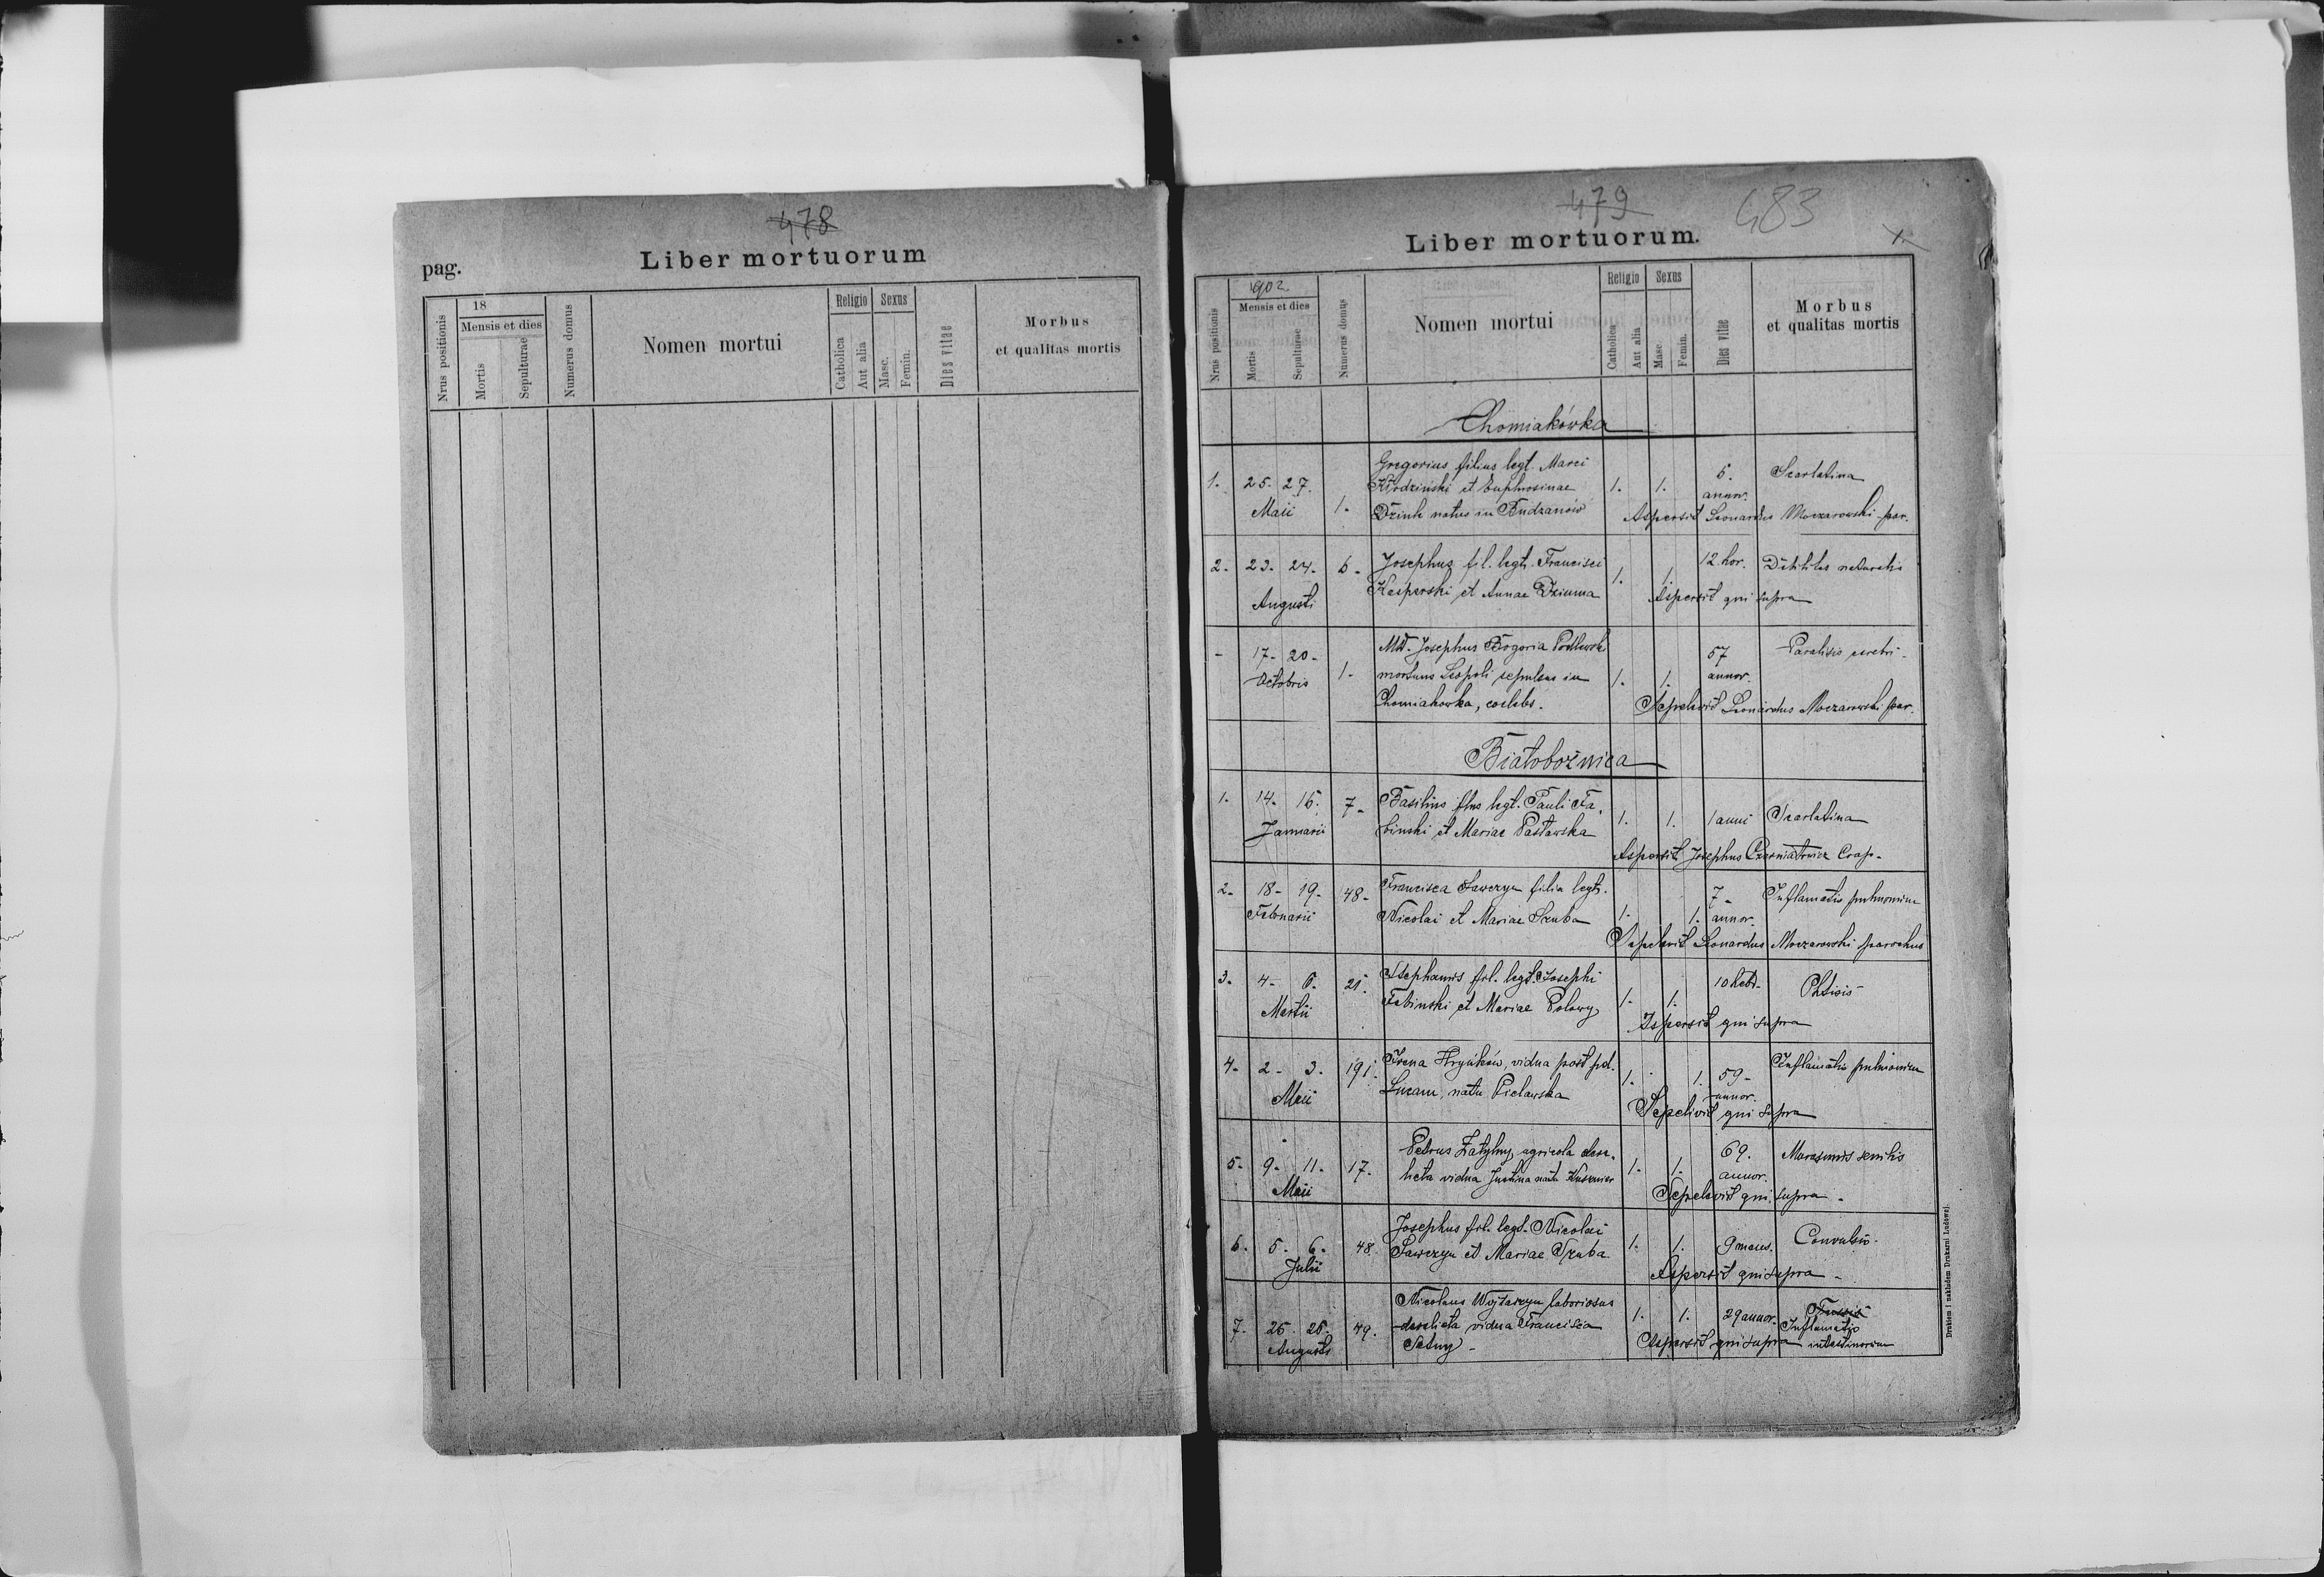 478
pag.
Liber mortuorum
Nrus positionis
18
Mensis et dies
Mortis
Sepulturae
Numerus domus
Nomen mortui
Religio
Catholica
Aut alia
Sexus
Masc.
Femin.
Dies vitae
Morbus
et qualitas mortis
479
483
Liber mortuorum.
Nrus positionis
1902
Mensis et dies
Mortis
Sepulturae
Numerus domus
Nomen mortui
Religio
Catholica
Aut alia
Sexus
Masc.
Femin.
Dies vitae
Morbus
et qualitas mortis
Chomiakówka
1. 25. 27. Maii 1.
Gregorius filius legt. Marci
Kłodziński et Euphrosinae
natus in Budzanów
1. 1. annor. Scarlatina
Aspersit Leonardus Moczarowski par.
2. 23. 24. Augusti 6.
Josephus fil. legt. Francisci
Kasperski et Annae Dziuma
1. 1. 12 hor. Debilitas naturalis
Aspersit qui supra
- 17. 20. Octobris 1.
Josephus Bogoria Podlewski
mortuus Leopoli sepultus in
Chomiakowka, coelebs.
1. 1. 57 annor. Paralisis cerebri
Sepelivit Leonardus Moczarowski par.
Białobożnica
1. 14. 16. Januarii 7.
Basilius flus legt. Pauli Fa-
binski et Mariae Pasławska
1. 1. 1 anni Scarlatina
Aspersit Josephus Coop.
2. 18. 19. Februarii 48.
Francisca Sawczyn filia legt.
Nicolai et Mariae Szuba
1. 1. 7 annor. Inflamatio pulmonum
Sepelivit Leonardus Moczarowski parochus
3. 4. 6. Martii 21.
Stephanus fil. legt. Josephi
Fabinski et Mariae Polowy
1. 1. 10 hebd. Phtisis
Aspersit qui supra
4. 2. 3. Maii 191.
Irena Hryńków, vidua post
Lucam, nata
1. 1. 59 annor. Inflamatio pulmonum
Sepelivit qui supra
5. 9. 11. Maii 17.
Petrus Zatylny agricola dere-
licta vidua Justina nata Kusznier
1. 1. 69. annor. Marasmus senilis
Sepelivit qui supra
6. 5. 6. Julii 48.
Josephus fil. legt. Nicolai
Sawczyn et Mariae Szuba
1. 1. 9 mens. Convulsio
Aspersit qui supra
7. 25. 26. Augusti 49.
Nicolaus Wojtaszyn laboriosus
derelicta vidua Francisca
1. 1. 29 annor. Tussis
Inflamatio
intestinorum
Aspersit qui supra
Drukiem i nakładem Drukarni Ludowej.